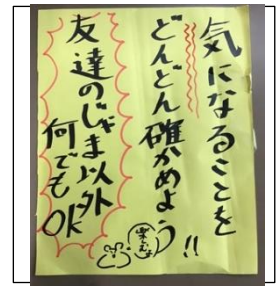 気になることを
どんどん確かめよう!!
友達のじゃま以外
何でもOK